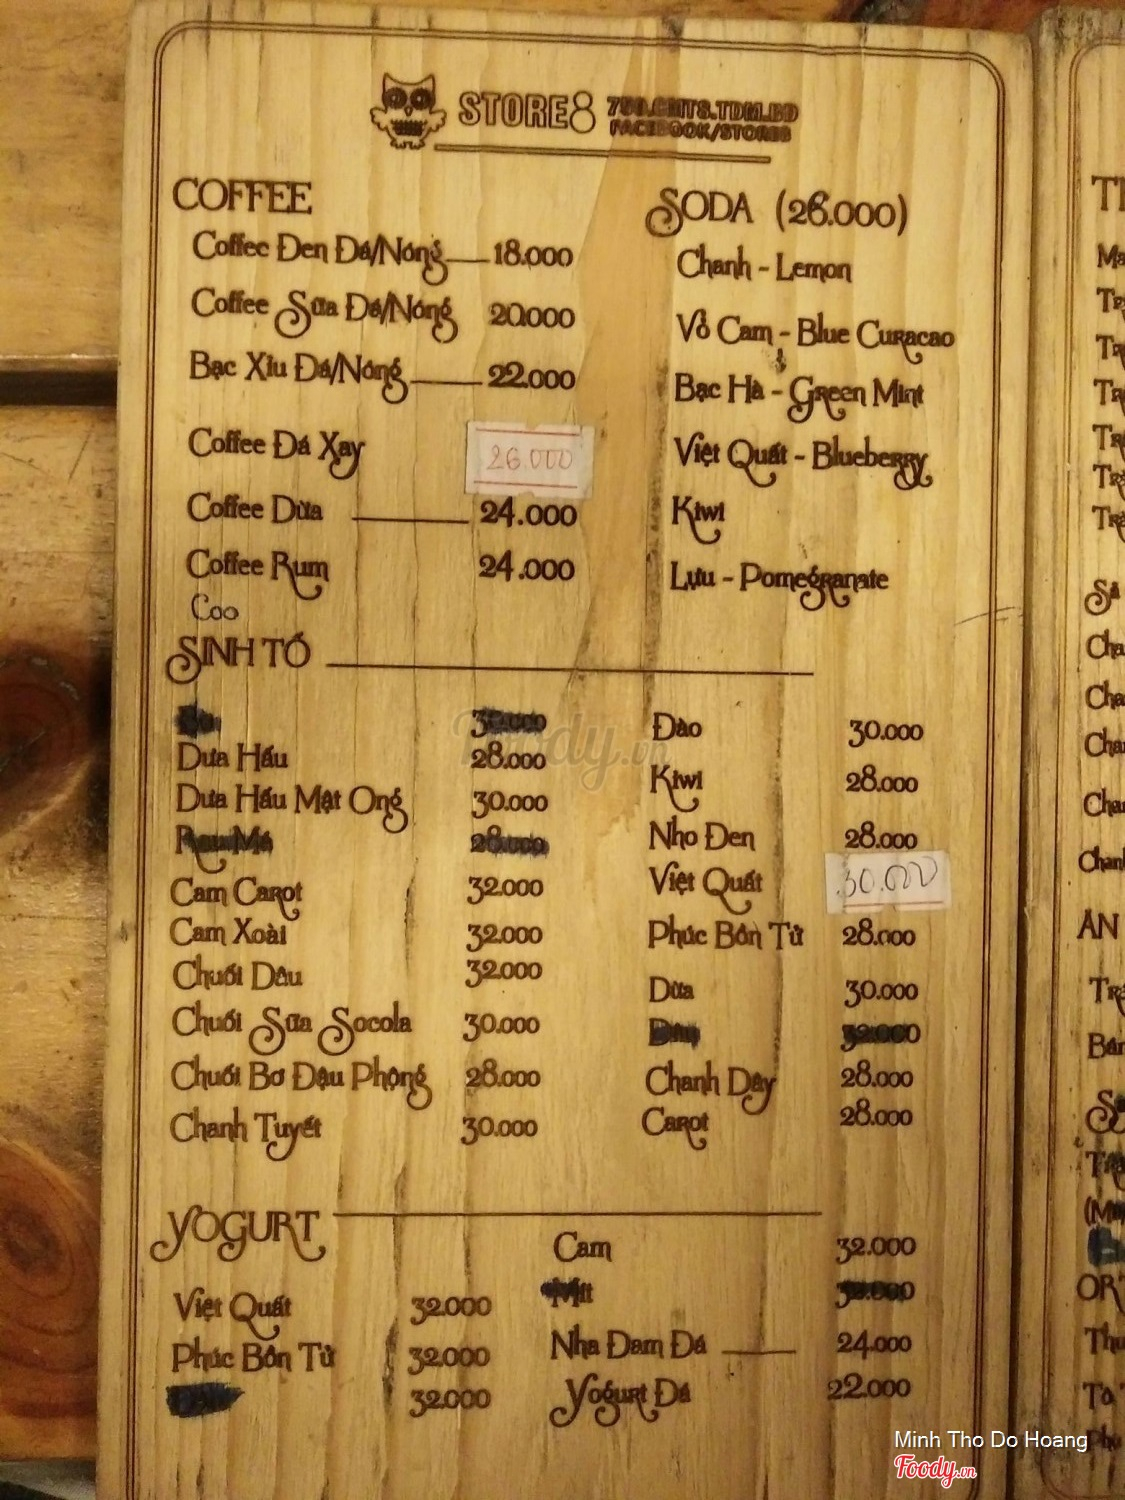 STORE8 750.CMT8.TDM.BD
FACEBOOK/STORE8
COFFEE
Coffee Đen Đá/Nóng 18.000
Coffee Sữa Đá/Nóng 20.000
Bạc Xỉu Đá/Nóng 22.000
Coffee Đá Xay 26.000
Coffee Dừa 24.000
Coffee Rum 24.000
Coo
SODA (26.000)
Chanh - Lemon
Vỏ Cam - Blue Curacao
Bạc Hà - Green Mint
Việt Quất - Blueberry
Kiwi
Lựu - Pomegranate
SINH TỐ
Dưa Hấu 28.000
Dưa Hấu Mật Ong 30.000
Rau Má 28.000
Cam Carot 32.000
Cam Xoài 32.000
Chuối Dâu 32.000
Chuối Sữa Socola 30.000
Chuối Bơ Đậu Phộng 28.000
Chanh Tuyết 30.000
Đào 30.000
Kiwi 28.000
Nho Đen 28.000
Việt Quất 30.000
Phúc Bồn Tử 28.000
Dừa 30.000
32.000
Chanh Dây 28.000
Carot 28.000
YOGURT
Việt Quất 32.000
Phúc Bồn Tử 32.000
32.000
Cam 32.000
Mít
Nha Đam Đá 24.000
Yogurt Đá 22.000
Foody.vn
Minh Tho Do Hoang
Foody.vn